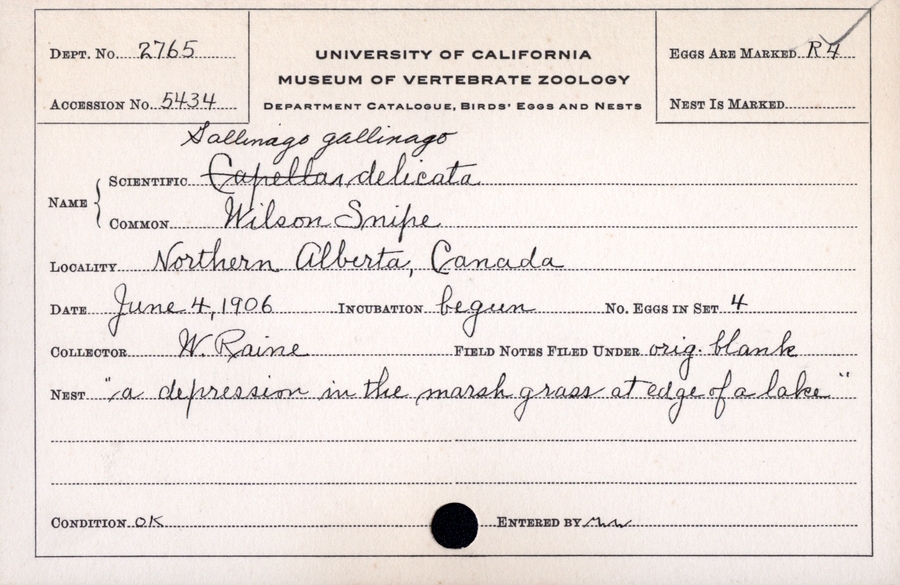 Dept. No. 2765
Accession No. 5434
UNIVERSITY OF CALIFORNIA
MUSEUM OF VERTEBRATE ZOOLOGY
Department Catalogue, Birds' Eggs and Nests
Eggs Are Marked R4
Nest Is Marked
Gallinago gallinago
Name { Scientific Capella delicata
Common Wilson Snipe
Locality Northern Alberta, Canada
Date June 4, 1906 Incubation begun No. Eggs in Set 4
Collector W. Raine Field Notes Filed Under orig. blank
Nest "a depression in the marsh grass at edge of a lake"
Condition OK Entered by